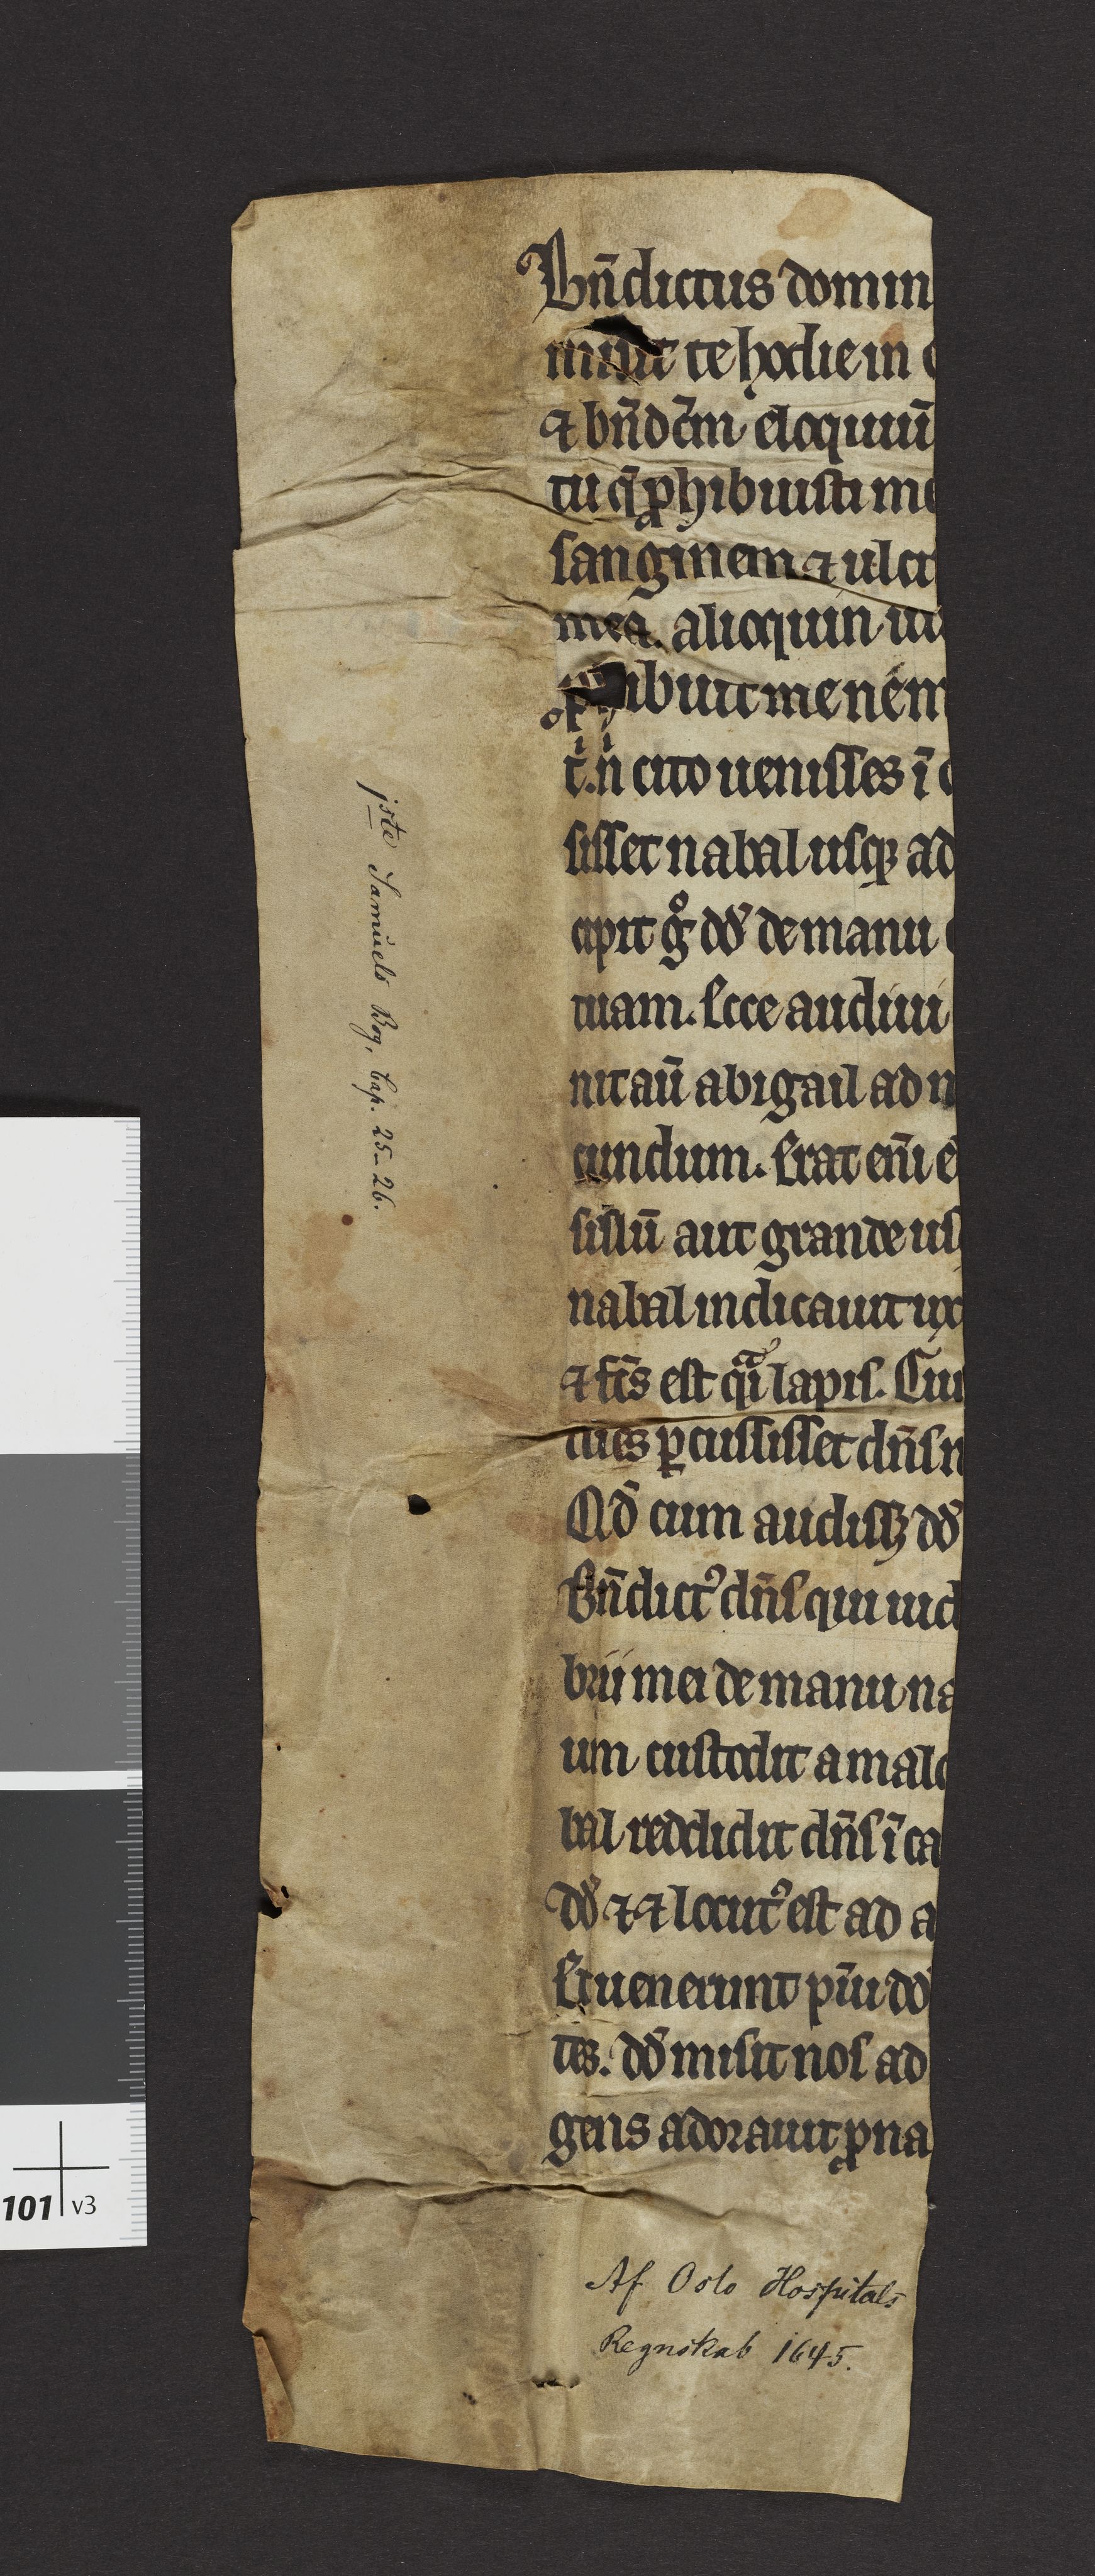 Bn̄dictus domin
minit te hodie in
⁊ bn̄dc̄m eloquiū
tu q̄ ꝓhibuisti me
sanginem ⁊ ulci
mea. alioquin ui
ꝓhibuit me ne m
t. ń cito uenisses ī o
sisset nabal usqꝫ ad
cepit gͦ dd̄ de manu
tuam. Ecce audiui
nit aū abigail ad n
cundum. Erat eni͞ e
sillū aut grande us
nabal indicauit ux
⁊ fc̄s est qͣi lapis. Cu
dies ꝑcussisset dn̄s n
Qd̄ cum audissꝫ dd̄
Bn̄dictꝰ dn̄s qui iud
brii mei de manu na
um custodit a malo
bal reddidit dn̄s ī ca
dd̄ ⁊ ⁊ locutꝰ est ad a
Et uenerunt pūi dd̄
tes. dd̄ misit nos ad
gens adorauit ꝓna
jste Samuels Bog, Cap. 25-26.
Af Oslo Hospitals
Regnskab 1645.
101 v3